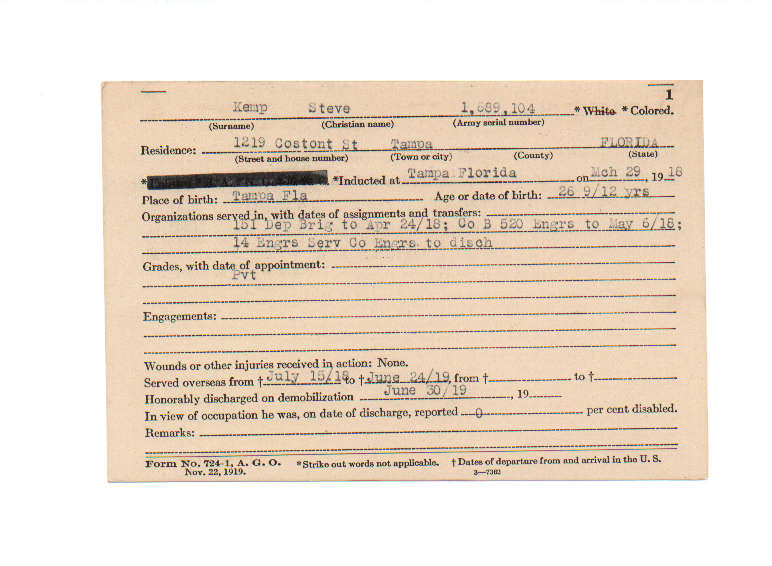 1
Kemp Steve 1,689,104 *White *Colored.
(Surname) (Christian name) (Army serial number)
Residence: 1219 Costont St Tampa FLORIDA
(Street and house number) (Town or city) (County) (State)
* *Inducted at Tampa Florida on Mch 29, 1918
Place of birth: Tampa Fla Age or date of birth: 26 9/12 yrs
Organizations served in, with dates of assignments and transfers:
151 Dep Brig to Apr 24/18; Co B 520 Engrs to May 6/18;
14 Engrs Serv Co Engrs to disch
Grades, with date of appointment:
Pvt
Engagements:
Wounds or other injuries received in action: None.
Served overseas from † July 15/18 to † June 24/19, from † to †
Honorably discharged on demobilization June 30/19, 19
In view of occupation he was, on date of discharge, reported 0 per cent disabled.
Remarks:
Form No. 724-1, A. G. O. *Strike out words not applicable. † Dates of departure from and arrival in the U. S.
Nov. 22, 1919. 3—7302